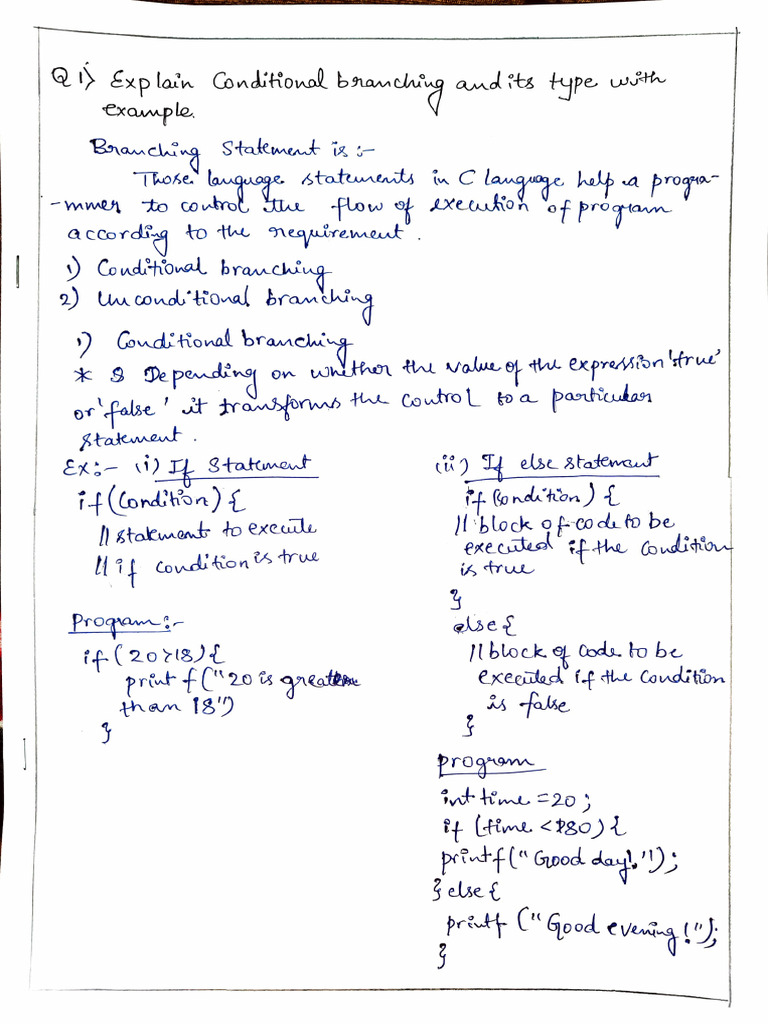 Q 1) Explain Conditional branching and its type with
example.
Branching Statement is :-
Those language statements in C language help a progra-
-mmer to control the flow of execution of program
according to the requirement.
1) Conditional branching
2) Unconditional branching
1) Conditional branching
* Depending on whether the value of the expression 'true'
or 'false' it transforms the control to a particular
statement.
Ex:- (i) If Statement
if (Condition) {
// statement to execute
// if condition is true
Program:-
if (20>18) {
print f("20 is greater
than 18")
}
(ii) If else statement
if (Condition) {
// block of code to be
executed if the condition
is true
}
else {
// block of code to be
executed if the condition
is false
}
program
int time = 20;
if (time < 80) {
printf("Good day!");
} else {
printf ("Good evening!");
}